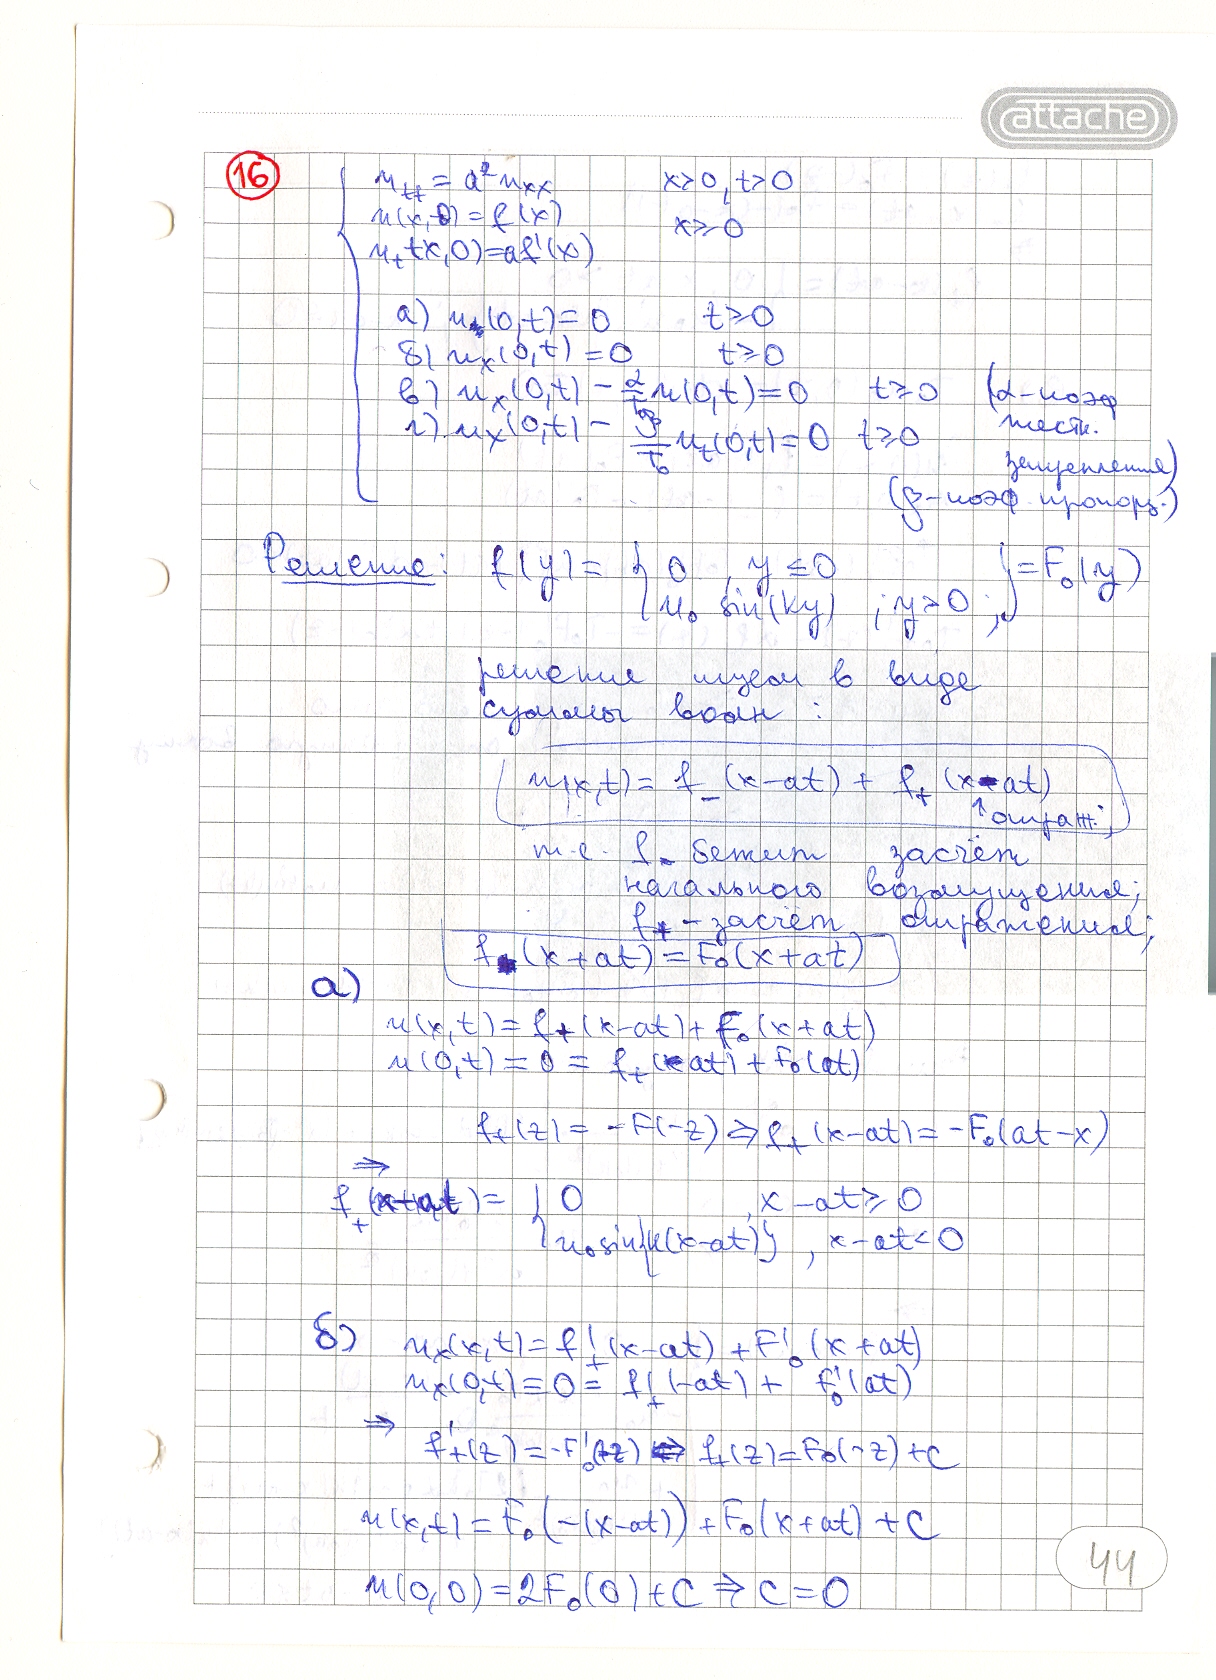 attache
16
u_tt = a² u_xx x>0, t>0
u(x,0) = f(x) x≥0
u_t(x,0) = af'(x)
а) u(0,t) = 0 t≥0
б) u_x(0,t) = 0 t≥0
в) u_x(0,t) - α/T₀ u(0,t) = 0 t≥0 (α-коэф
жестк.
г) u_x(0,t) - β/T₀ u_t(0,t) = 0 t≥0
защепления)
(β-коэф пропорц.)
Решение: f(y) = { 0 , y ≤ 0 } = F₀(y)
u₀ sin(ky) ; y>0 ;
решение ищем в виде
суммы волн :
u(x,t) = f₋(x-at) + f₊(x-at)
↑ отраж.;
т.е. f₋ бежит засчёт
начального возмущения;
f₊ - засчёт отражения;
f₋(x+at) = F₀(x+at)
а)
u(x,t) = f₊(x-at) + F₀(x+at)
u(0,t) = 0 = f₊(-at) + F₀(at)
f₊(z) = -F(-z) ⇒ f₊(x-at) = -F₀(at-x)
⇒
f₊(x-at) = { 0 , x-at ≥ 0
u₀ sin{k(x-at)} , x-at < 0
б) u_x(x,t) = f'₊(x-at) + F'₀(x+at)
u_x(0,t) = 0 = f'₊(-at) + f'₀(at)
⇒
f'₊(z) = -F'₀(-z) ⇔ f₊(z) = F₀(-z) + C
u(x,t) = F₀(-(x-at)) + F₀(x+at) + C
u(0,0) = 2F₀(0) + C ⇒ C = 0
44